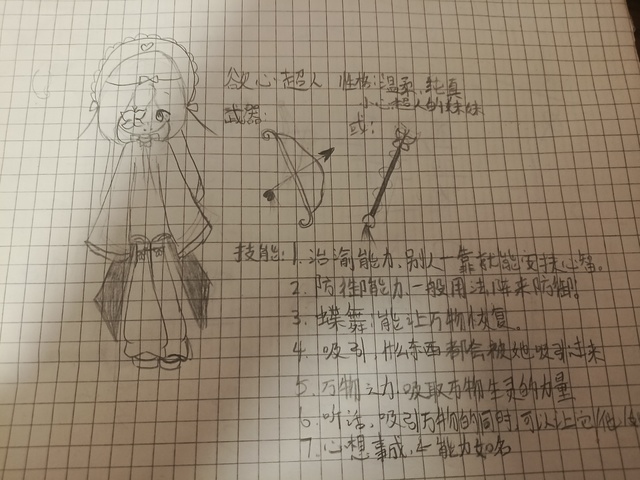 心超人 性格:温柔,纯真
小心超人的妹妹
武器: 或:
技能:1.治愈能力,别人一靠就能安抚心矮。
2.防御能力,一般用法阵来防御。
3.蝶舞,能让万物恢复。
4.吸引,什么东西都会被她吸引过来
5.万物之力,吸取万物生灵的力量
6.听话,吸引万物的同时可以让它
7.心想事成,能力如名